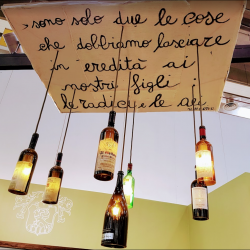 > sono solo due le cose
che dobbiamo lasciare
in eredità ai
nostri figli:
le radici e le ali